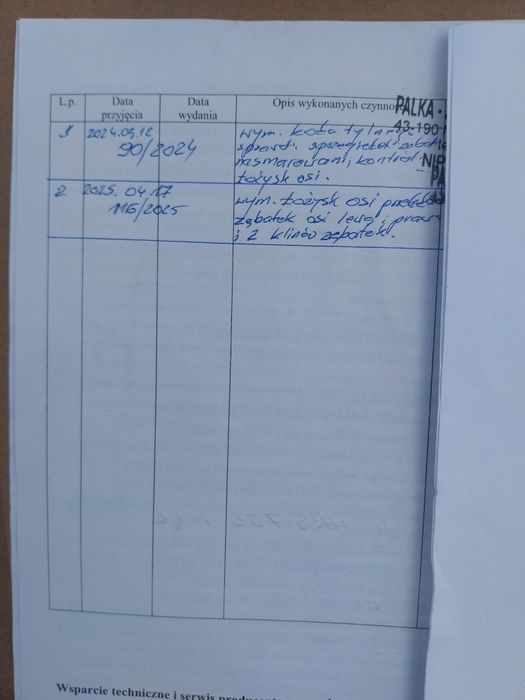 L.p. Data przyjęcia Data wydania Opis wykonanych czynnoś
PALKA -
43-190
NIP
1 2024.09.12 wym. koła tyln
90/2024 sprawdz. sprzęgiełek
nasmarowani, kontrol
łożysk osi.
2 2025.04.17 wym. łożysk osi
116/2025 zębatek osi lewa i praw
i 2 klinów zębatek.
Wsparcie techniczne i serwis